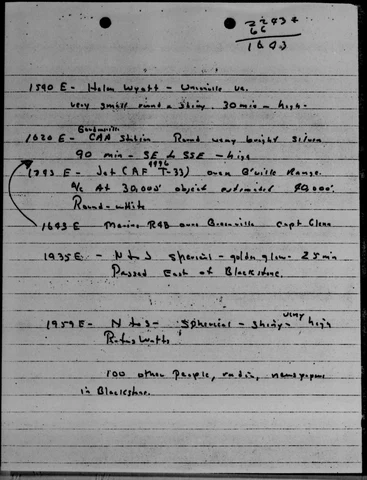 2243 z
66
1643
1540 E - Helen Wyatt - Unionville Va.
very small round & shiny 30 min - high.
Gordonsville
1620 E - CAA Station Round very bright silver
90 min - SE to SSE - high
4996
1743 E - Jet (AF T-33) over B'ville Range.
a/c At 30,000' object estimated 90,000'.
Round - white
1643 E Marine R4B over Gordonsville Capt Glenn
1935 E - N & S Spherical - golden glow - 25 min
Passed East of Blackstone.
1959 E - N & S - Spherical - shiny - very high
Rufus Watts
100 other people, radio, newspapers
in Blackstone.